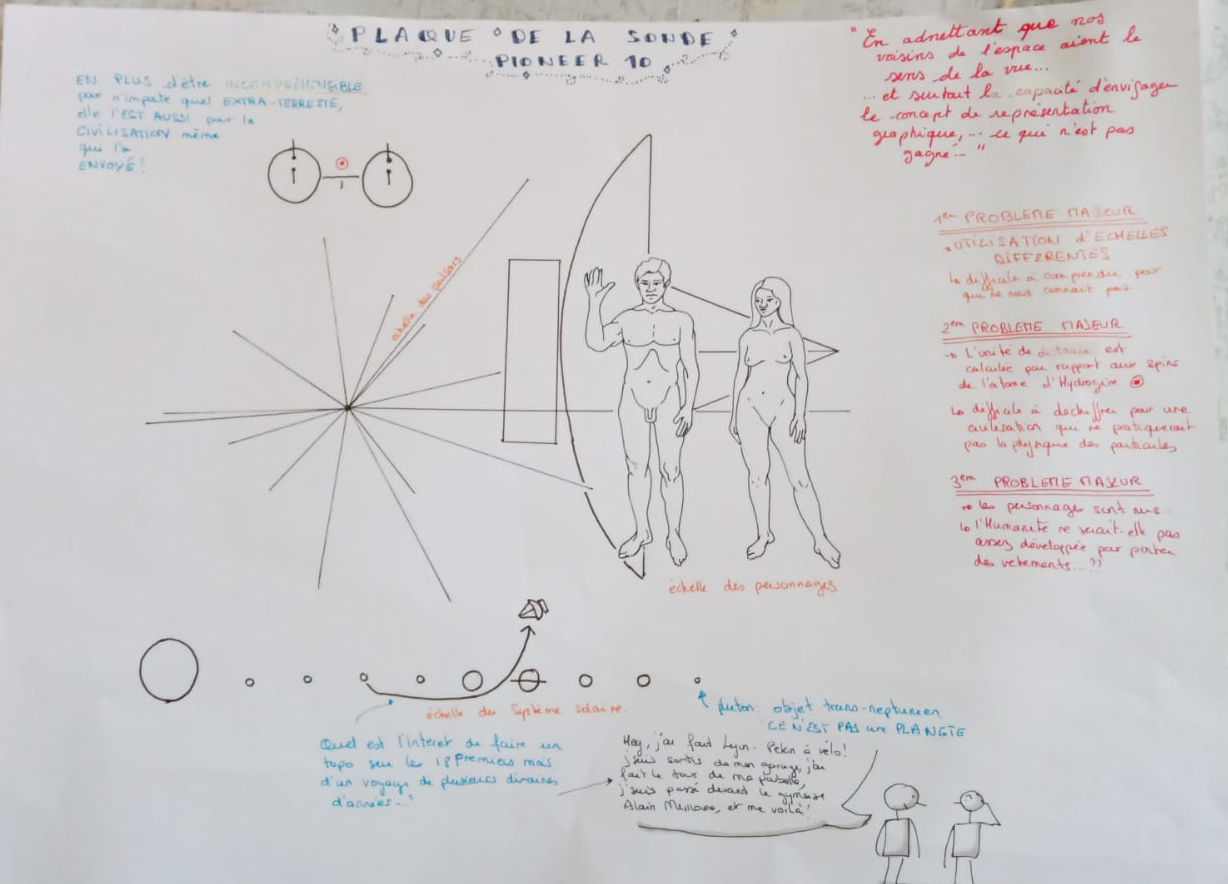 PLAQUE DE LA SONDE
PIONEER 10
EN PLUS d'être INCOMPRÉHENSIBLE
pour n'importe quel EXTRA-TERRESTE,
elle l'EST AUSSI pour la
CIVILISATION même
qui l'a
ENVOYÉ!
"En admettant que nos
voisins de l'espace aient le
sens de la vue...
... et surtout la capacité d'envisager
le concept de représentation
graphique, ... ce qui n'est pas
gagné..."
échelle des pulsars
1er PROBLEME MAJEUR
UTILISATION d'ECHELLES
DIFFERENTES
difficile à comprendre pour
qui ne nous connait pas
2em PROBLEME MAJEUR
L'unité de distance est
calculée par rapport aux spins
de l'atome d'Hydrogène
difficile à dechiffrer pour une
civilisation qui ne pratiquerait
pas la physique des particules
3em PROBLEME MAJEUR
les personnages sont nus
l'Humanité ne serait-elle pas
assez développée pour porter
des vetements...??
échelle des personnages
échelle du Système solaire
pluton: objet trans-neptunien
CE N'EST PAS une PLANETE
Quel est l'interet de faire un
topo sur les 18 premiers mois
d'un voyage de plusieurs dizaines
d'années..."
Hey, j'ai fait Lyon-Pekin à vélo!
j'suis sortis de mon garage, j'ai
fait le tour de ma poubelle,
j'suis passé devant le gymnase
Alain Mimoun, et me voilà!